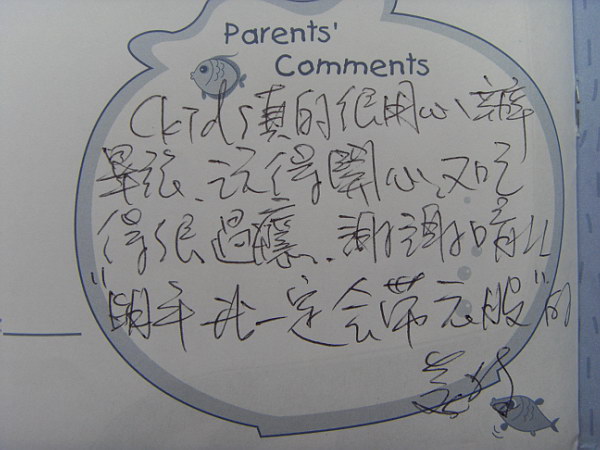 Parents'
Comments
Ckids真的很用心辦
畢旅、玩得開心、又吃
得很過癮、謝謝
"明年我一定会帶衣服"的